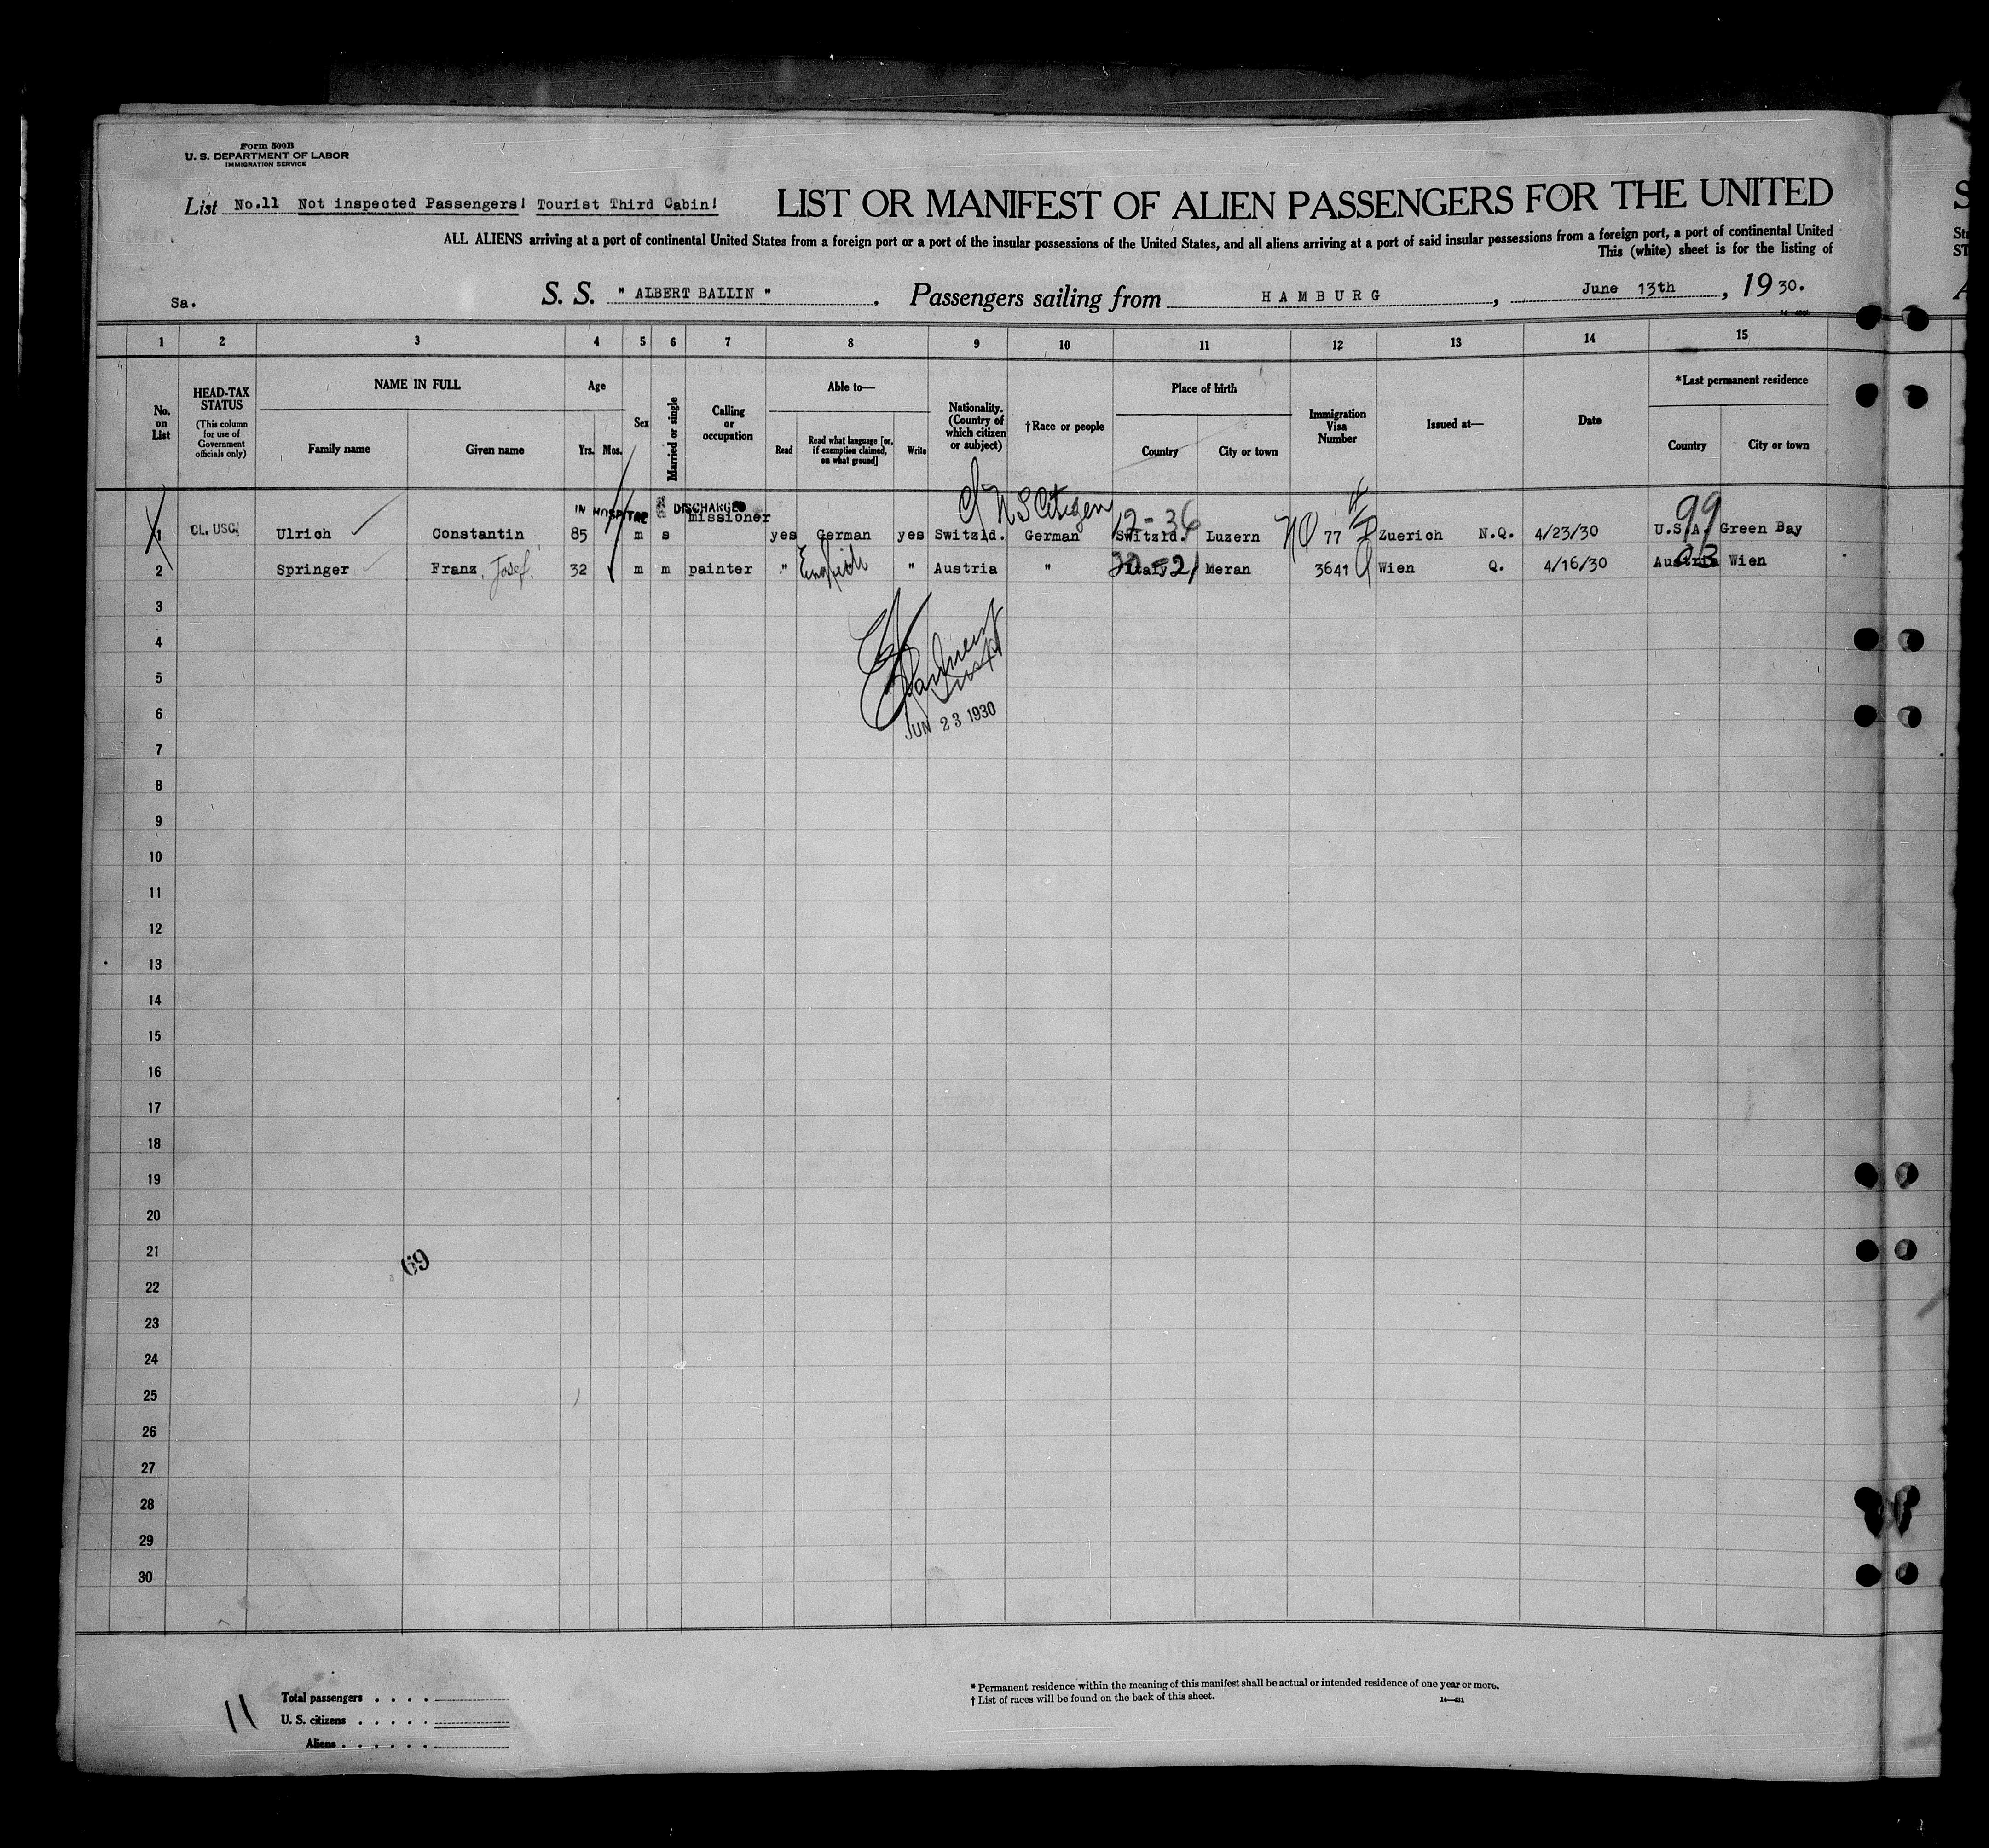 Form 500B
U. S. DEPARTMENT OF LABOR
IMMIGRATION SERVICE
List No.11 Not inspected Passengers! Tourist Third Cabin!
LIST OR MANIFEST OF ALIEN PASSENGERS FOR THE UNITED
ALL ALIENS arriving at a port of continental United States from a foreign port or a port of the insular possessions of the United States, and all aliens arriving at a port of said insular possessions from a foreign port, a port of continental United
This (white) sheet is for the listing of
Sa.
S. S. " ALBERT BALLIN " . Passengers sailing from HAMBURG, June 13th, 1930.
1 2 3 4 5 6 7 8 9 10 11 12 13 14 15
No. on List
HEAD-TAX STATUS
(This column for use of Government officials only)
NAME IN FULL
Family name
Given name
Age
Yrs. Mos.
Sex
Married or single
Calling or occupation
Able to—
Read
Read what language [or, if exemption claimed, on what ground]
Write
Nationality. (Country of which citizen or subject)
†Race or people
Place of birth
Country
City or town
Immigration Visa Number
Issued at—
Date
*Last permanent residence
Country
City or town
IN HOSPITAL DISCHARGED
U S Citizen
12-36
99
1 CL. USC. Ulrich Constantin 85 m s missioner yes German yes Switzld. German Switzld. Luzern NO 77 Zuerich N.Q. 4/23/30 U.S.A. Green Bay
2 Springer Franz Josef. 32 m m painter " English " Austria " Italy Meran 3641 Wien Q. 4/16/30 Austria Wien
3
4
5
6
JUN 23 1930
7
8
9
10
11
12
13
14
15
16
17
18
19
20
21
69
22
23
24
25
26
27
28
29
30
11
Total passengers . . . .
U. S. citizens . . . . .
Aliens . . . . . .
* Permanent residence within the meaning of this manifest shall be actual or intended residence of one year or more.
† List of races will be found on the back of this sheet.